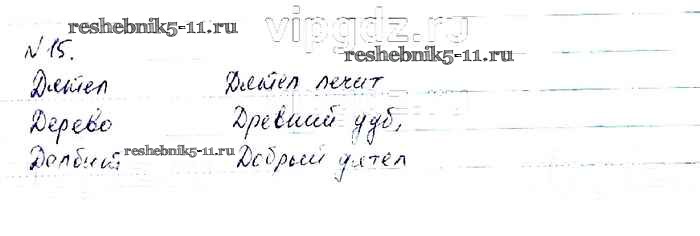 vipgdz.ru
reshebnik5-11.ru
№15.
reshebnik5-11.ru
Дятел Дятел лечит
Дерево Древний дуб,
Долбит reshebnik5-11.ru Добрый дятел